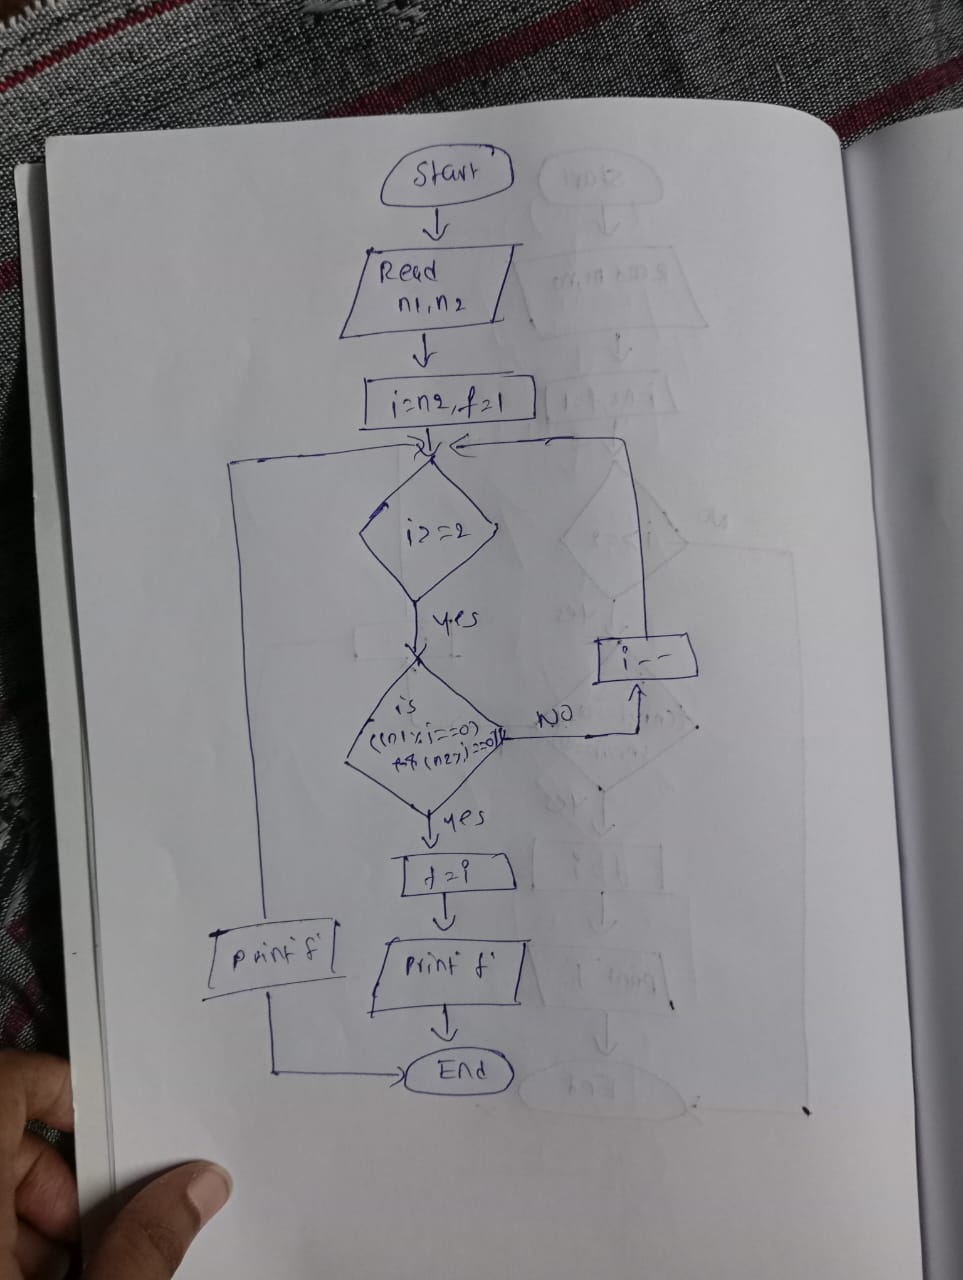 Start
Read
n1, n2
i=n2, f=1
i>=2
yes
is
((n1%i==0)
&& (n2%i==0))
NO
i--
yes
f=i
print f
print f
End